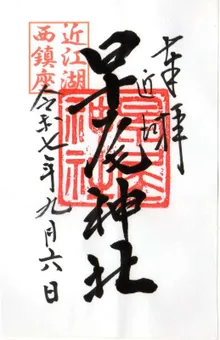 奉拝
近江
早尾神社
近江湖
西鎮座
早尾
神社
令和七年九月六日